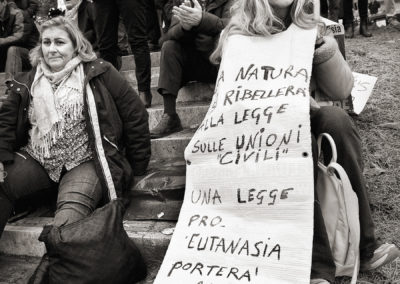 A NATURA
RIBELLERÀ
ALLA LEGGE
SULLE UNIONI
"CIVILI"
UNA LEGGE
PRO-
EUTANASIA
PORTERA'